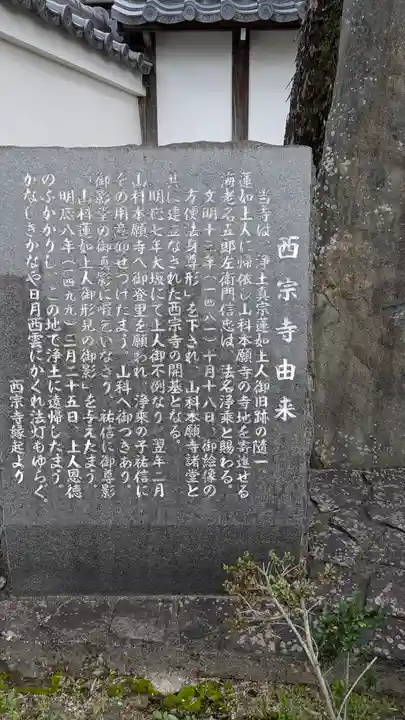 西宗寺由来
当寺は、浄土真宗蓮如上人御旧跡の随一
蓮如上人に帰依し山科本願寺の寺地を寄進せる
海老名五郎左衛門信忠は、法名浄乗と賜わる。
文明十三年(一四八一)十月十八日、御絵像の
「方便法身尊形」を下され、山科本願寺諸堂と
共に建立なされた西宗寺の開基となる。
明応七年大坂にて上人御不例なり、翌年二月
山科本願寺へ御登里を願われ、浄乗の子祐信に
その用意仰せつけたまう。山科へ御つきあり。
御影堂の御真影に暇乞いなさり、祐信に御寿影
「山科蓮如上人御形見の御影」を与えたまう。
明応八年(一四九九)三月二十五日、上人恩徳
のふかかりし、この地で浄土に還帰したまう。
かなしきかなや日月西雲にかくれ法灯もゆらぐ。
西宗寺縁起より